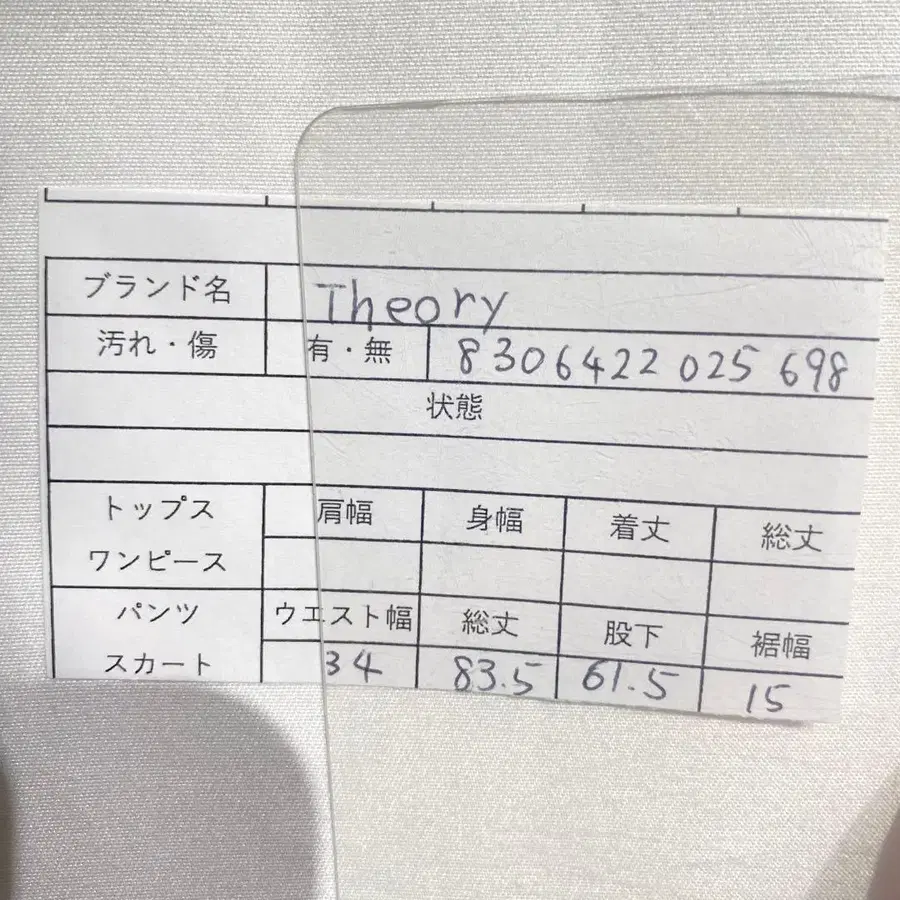 ブランド名 Theory
汚れ・傷 有・無 8306422 025 698
状態
トップス 肩幅 身幅 着丈 総丈
ワンピース
パンツ ウエスト幅 総丈 股下 裾幅
スカート 34 83.5 61.5 15